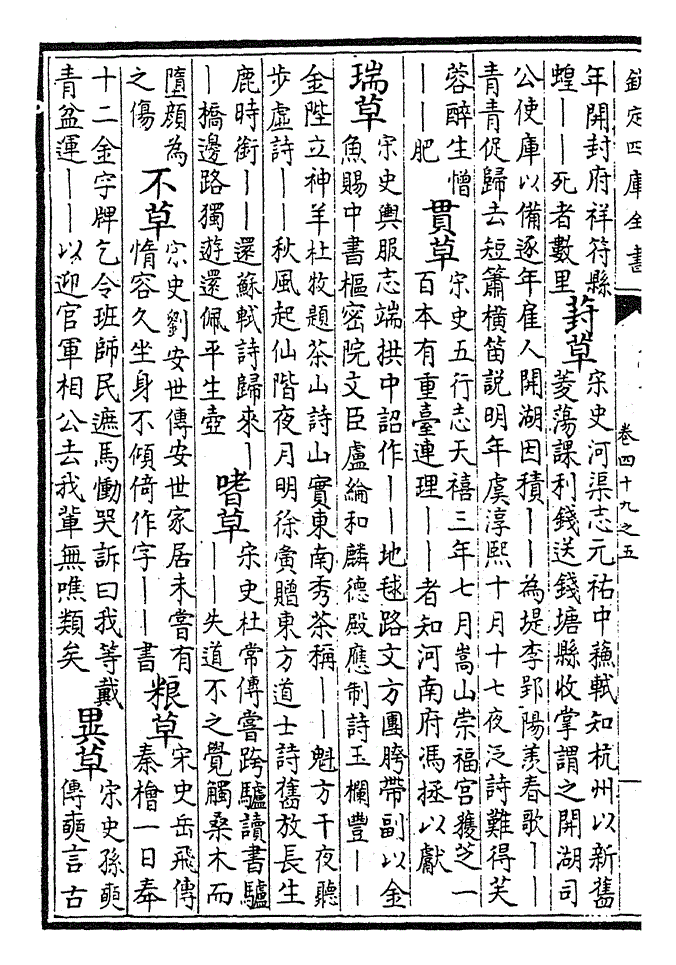 欽定四庫全書
卷四十九之五
年開封府祥符縣
蝗——死者數里
葑草
宋史河渠志元祐中蘇軾知杭州以新舊
菱蕩課利錢送錢塘縣收掌謂之開湖司
公使庫以備逐年雇人開湖因積——為堤李郢陽羨春歌——
青青促歸去短簫橫笛說明年虞淳熙十月十七夜泛詩難得芙
蓉醉生憎
——肥
貫草
宋史五行志天禧三年七月嵩山崇福宮獲芝一
百本有重臺連理——者知河南府馮拯以獻
瑞草
宋史輿服志端拱中詔作——地毬路文方團胯帶副以金
魚賜中書樞密院文臣盧綸和麟德殿應制詩玉欄豐——
金陛立神羊杜牧題茶山詩山實東南秀茶稱——魁方干夜聽
步虛詩——秋風起仙階夜月明徐夤贈東方道士詩舊放長生
鹿時銜——還蘇軾詩歸來—
—橋邊路獨遊還佩平生壺
嗜草
宋史杜常傳嘗跨驢讀書驢
——失道不之覺觸桑木而
墮顏為
之傷
不草
宋史劉安世傳安世家居未嘗有
惰容久坐身不傾倚作字——書
粮草
宋史岳飛傳
秦檜一日奉
十二金字牌乞令班師民遮馬慟哭訴曰我等戴
青盆運——以迎官軍相公去我輩無噍類矣
異草
宋史孫奭
傳奭言古